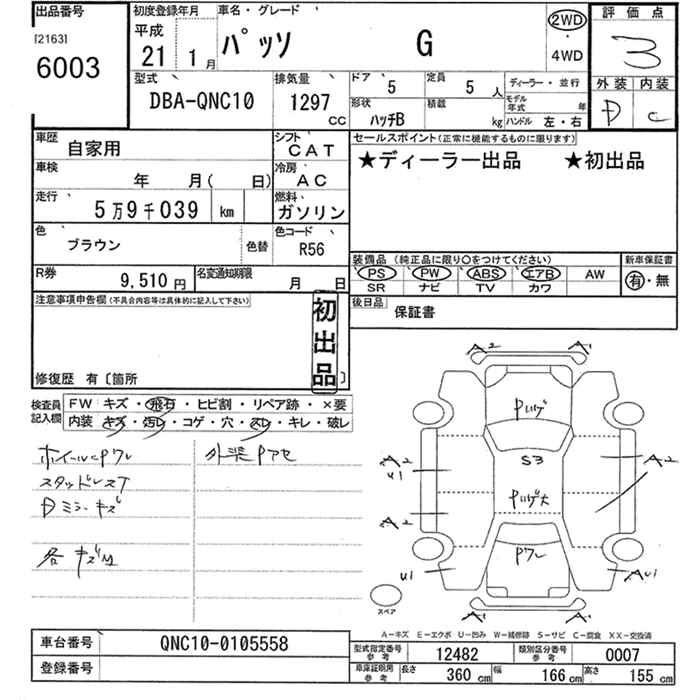 出品番号
[2163]
6003
初度登録年月
平成
21 1月
車名・グレード
パッソ G
2WD
・
4WD
評価点
3
外装 内装
D C
型式
DBA-QNC10
排気量
1297 CC
ドア
5
定員
5人
ディーラー・並行
形状
ハッチB
積載
kg
モデル年式 年
ハンドル 左・右
車歴
自家用
シフト
CAT
セールスポイント(正常に機能するものに限ります)
★ディーラー出品 ★初出品
車検
年 月( 日)
冷房
AC
走行
5万9千039 km
燃料
ガソリン
色
ブラウン
色替
色コード
R56
装備品 (純正品に限り○をつけてください)
新車保証書
PS PW ABS エアB AW
SR ナビ TV カワ
有・無
R券
9,510円
名変通知期限
月 日
後日品
保証書
注意事項申告欄(不具合内容等は具体的に記入して下さい)
初出品
修復歴 有〔箇所 〕
検査員記入欄
FW キズ・飛石・ヒビ割・リペア跡・×要
内装 キズ・汚レ・コゲ・穴・スレ・キレ・破レ
ホイールCPワレ
外装Pアセ
スタッドレスT
Dミラーキズ
各キズ
A2 A1
Pハゲ
S3
A2
U1
A2
A2
Pハゲ大
Pワレ
U1
AU1
A1
スペア
A-キズ E-エクボ U-凹み W-補修跡 S-サビ C-腐食 XX-交換済
車台番号
QNC10-0105558
登録番号
型式指定番号参考
12482
類別区分番号参考
0007
車庫証明用参考
長さ 360 cm 幅 166 cm 高さ 155 cm